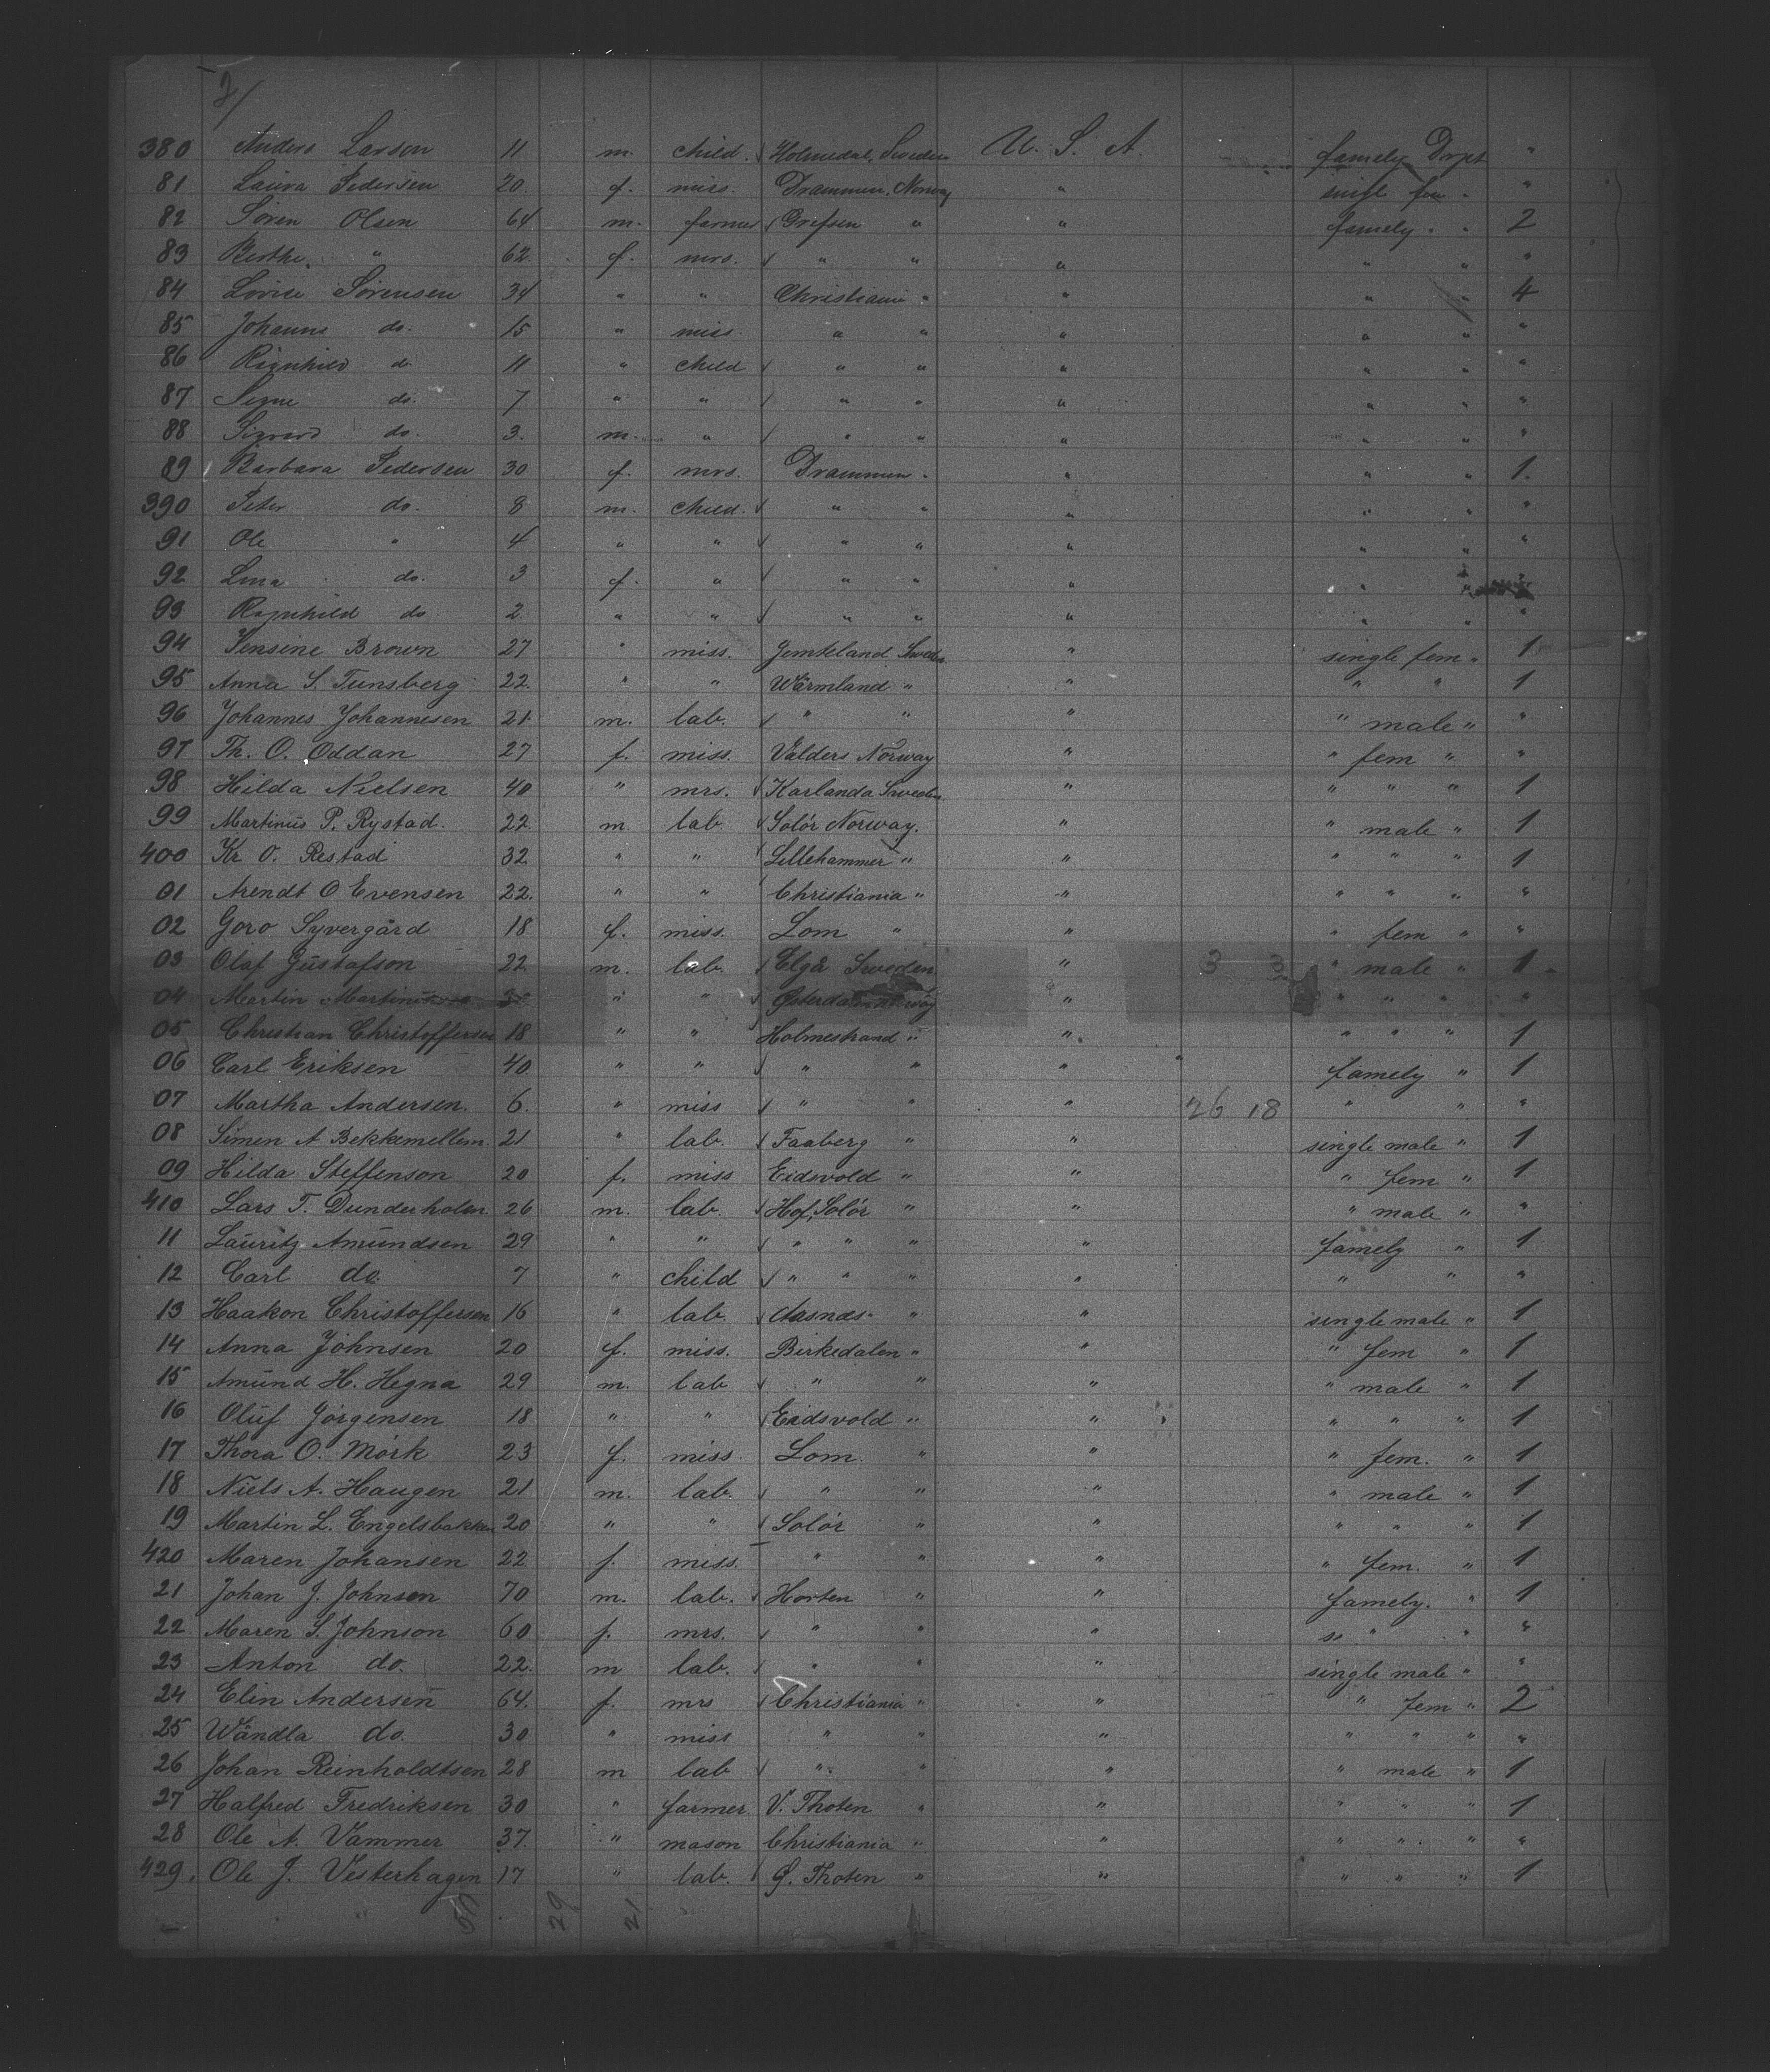 2/
380 Anders Larson 11 m. child. Holmedal, Sweden U. S. A. famely Dept "
81 Laura Pedersen 20. f. miss. Drammen, Norway " fem "
82 Sören Olsen 64 m. farmer Grefsen " " famely " 2
83 Berthe " 62. f. mrs. " " " " " "
84 Lovise Sörensen 34 " " Christiania " " " " 4
85 Johanne do. 15 " miss. " " " " " "
86 Ragnhild do 11 " child " " " " " "
87 Signe do. 7 " " " " " " " "
88 Sigvard do. 3. m. " " " " " " "
89 Barbara Pedersen 30 f. mrs. Drammen " " " " 1.
390 Peter do. 8 m. child. " " " " " "
91 Ole " 4 " " " " " " "
92 Lina do. 3 f. " " " " " "
93 Ragnhild do 2. " " " " " " " "
94 Jensine Brown 27 " miss. Jemteland Sweden " single fem " 1
95 Anna S. Tunsberg 22. " " Wärmland " " " " 1
96 Johannes Johannesen 21. m. lab. " " " " male " "
97 Th. O. Oddan 27 f. miss. Valders Norway " " fem " "
98 Hilda Nielsen 40 " mrs. Karlanda Sweden " " " " 1
99 Martinus P. Rystad. 22. m. lab Solör Norway. " " male " 1
400 Kr O. Restad 32 " " Lillehammer " " " " " 1
01 Arendt O Evensen 22. " " Christiania " " " " " "
02 Goro Syvergård 18 f. miss. Lom " " " fem " "
03 Olaf Gustafson 22 m. lab. Elgå Sweden " 3 3 " male " 1
04 Martin " " Österdalen Norway " " " " "
05 Christian Christoffersen 18 " " Holmestrand " " " " " 1
06 Carl Eriksen 40. " " " " " famely " 1
07 Martha Andersen. 6. " miss " " " 26 18 " " "
08 Simen A Bekkemellem. 21 " lab. Faaberg " " single male " 1
09 Hilda Steffenson 20 f. miss Eidsvold " " " fem " 1
410 Lars T. Dunderholen 26 m. lab. Hof, Solör " " " male " "
11 Lauritz Amundsen 29 " " " " " " famely " 1
12 Carl do. 7 " child " " " " " " "
13 Haakon Christoffersen 16 " lab. Aasnæs " " single male " 1
14 Anna Johnsen 20 f. miss. Birkedalen " " " fem " 1
15 Amund H. Hegna 29 m. lab " " " " male " 1
16 Oluf Jörgensen 18 " " Eidsvold " " " " " 1
17 Thora O. Mörk 23 f. miss. Lom " " " fem. " 1
18 Niels A. Haugen 21 m. lab. " " " " male " 1
19 Martin L. Engelsbakken 20 " " Solör " " " " " 1
420 Maren Johansen 22 f. miss. " " " " fem. " 1
21 Johan J. Johnson 70 m. lab. Horten " " famely. " 1
22 Maren S. Johnson 60 f. mrs. " " " " " "
23 Anton do. 22. m lab. " " " single male " "
24 Elin Andersen 64. f. mrs Christiania " " " fem " 2
25 Wändla do. 30 " miss " " " " " " "
26 Johan Reinholdtsen 28 m lab " " " " male " 1
27 Halfred Fredriksen 30 " farmer V. Thoten " " " " " 1
28 Ole A. Vammer 37. " mason Christiania " " " " " "
429. Ole J. Vesterhagen 17 " lab. Ø. Thoten " " " " " 1
50 29 21